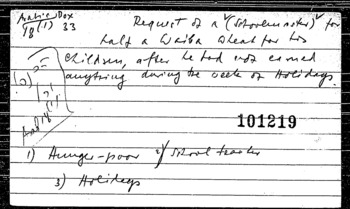 Arabic Box
18(1) 33
Request of a "(Schoolmaster)" for
half a Waiba wheat for his
children, after he had not earned
anything during the week of Holidays.
101219
1) Hunger-poor 2) School teacher
3) Holidays